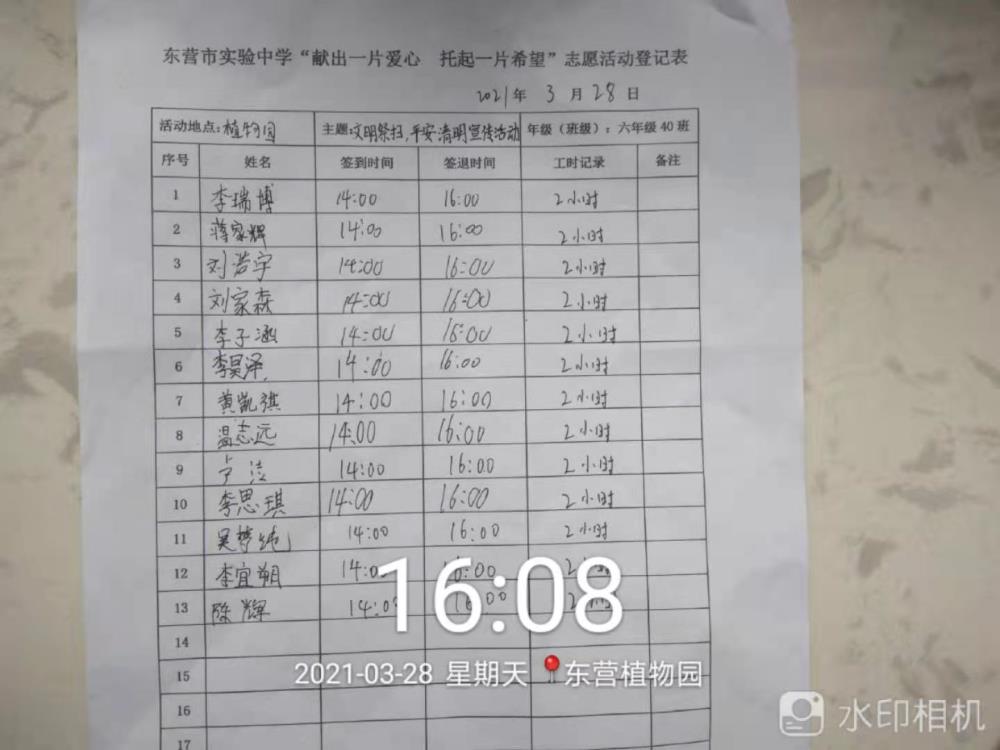 东营市实验中学“献出一片爱心 托起一片希望”志愿活动登记表
2021年 3 月 28 日
活动地点：植物园 主题：文明祭扫，平安清明宣传活动 年级（班级）：六年级 40 班
序号 姓名 签到时间 签退时间 工时记录 备注
1 李瑞博 14:00 16:00 2小时
2 蒋家辉 14:00 16:00 2小时
3 刘浩宇 14:00 16:00 2小时
4 刘家森 14:00 16:00 2小时
5 李子涵 14:00 16:00 2小时
6 李昊泽 14:00 16:00 2小时
7 黄凯祺 14:00 16:00 2小时
8 温志远 14:00 16:00 2小时
9 14:00 16:00 2小时
10 李思琪 14:00 16:00 2小时
11 吴梦纯 14:00 16:00 2小时
12 李宜朔 14:00 16:00 2小时
13 陈辉 14:00 16:00 2小时
14
15
16
17
16:08
2021-03-28 星期天 东营植物园
水印相机